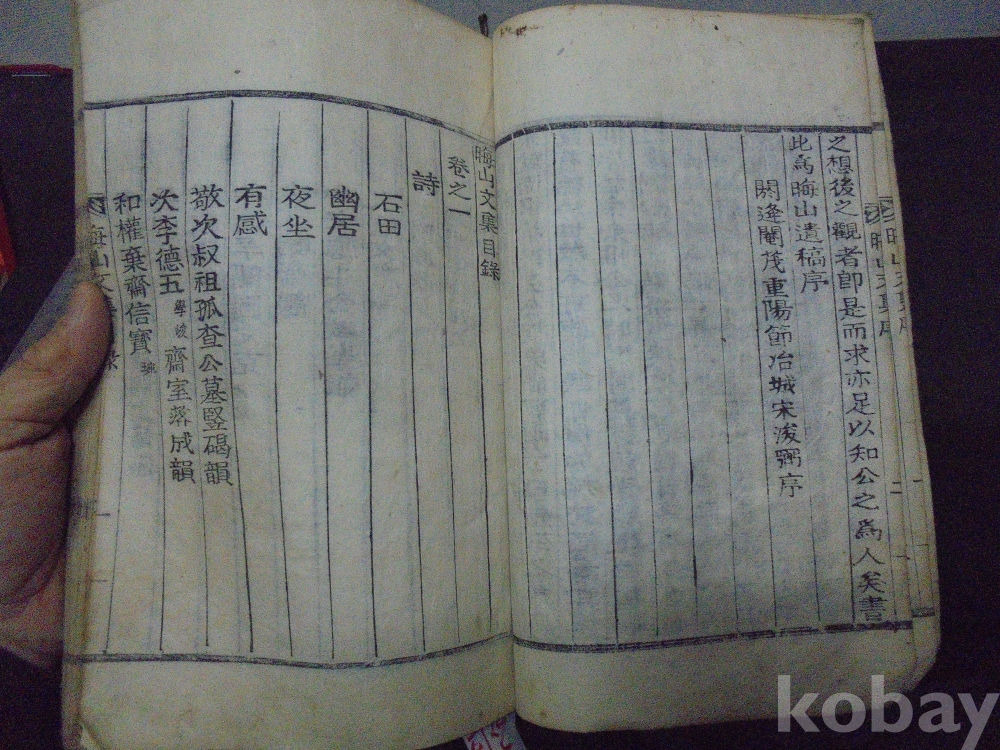 之想後之觀者卽是而求亦足以知公之爲人矣書
此爲晦山遺稿序
閼逢閹茂重陽節冶城宋浚弼序
晦山文集目錄
卷之一
詩
石田
幽居
夜坐
有感
敬次叔祖孤查公墓竪碣韻
次李德五 齋室落成韻
和權棄齋信寶
kobay